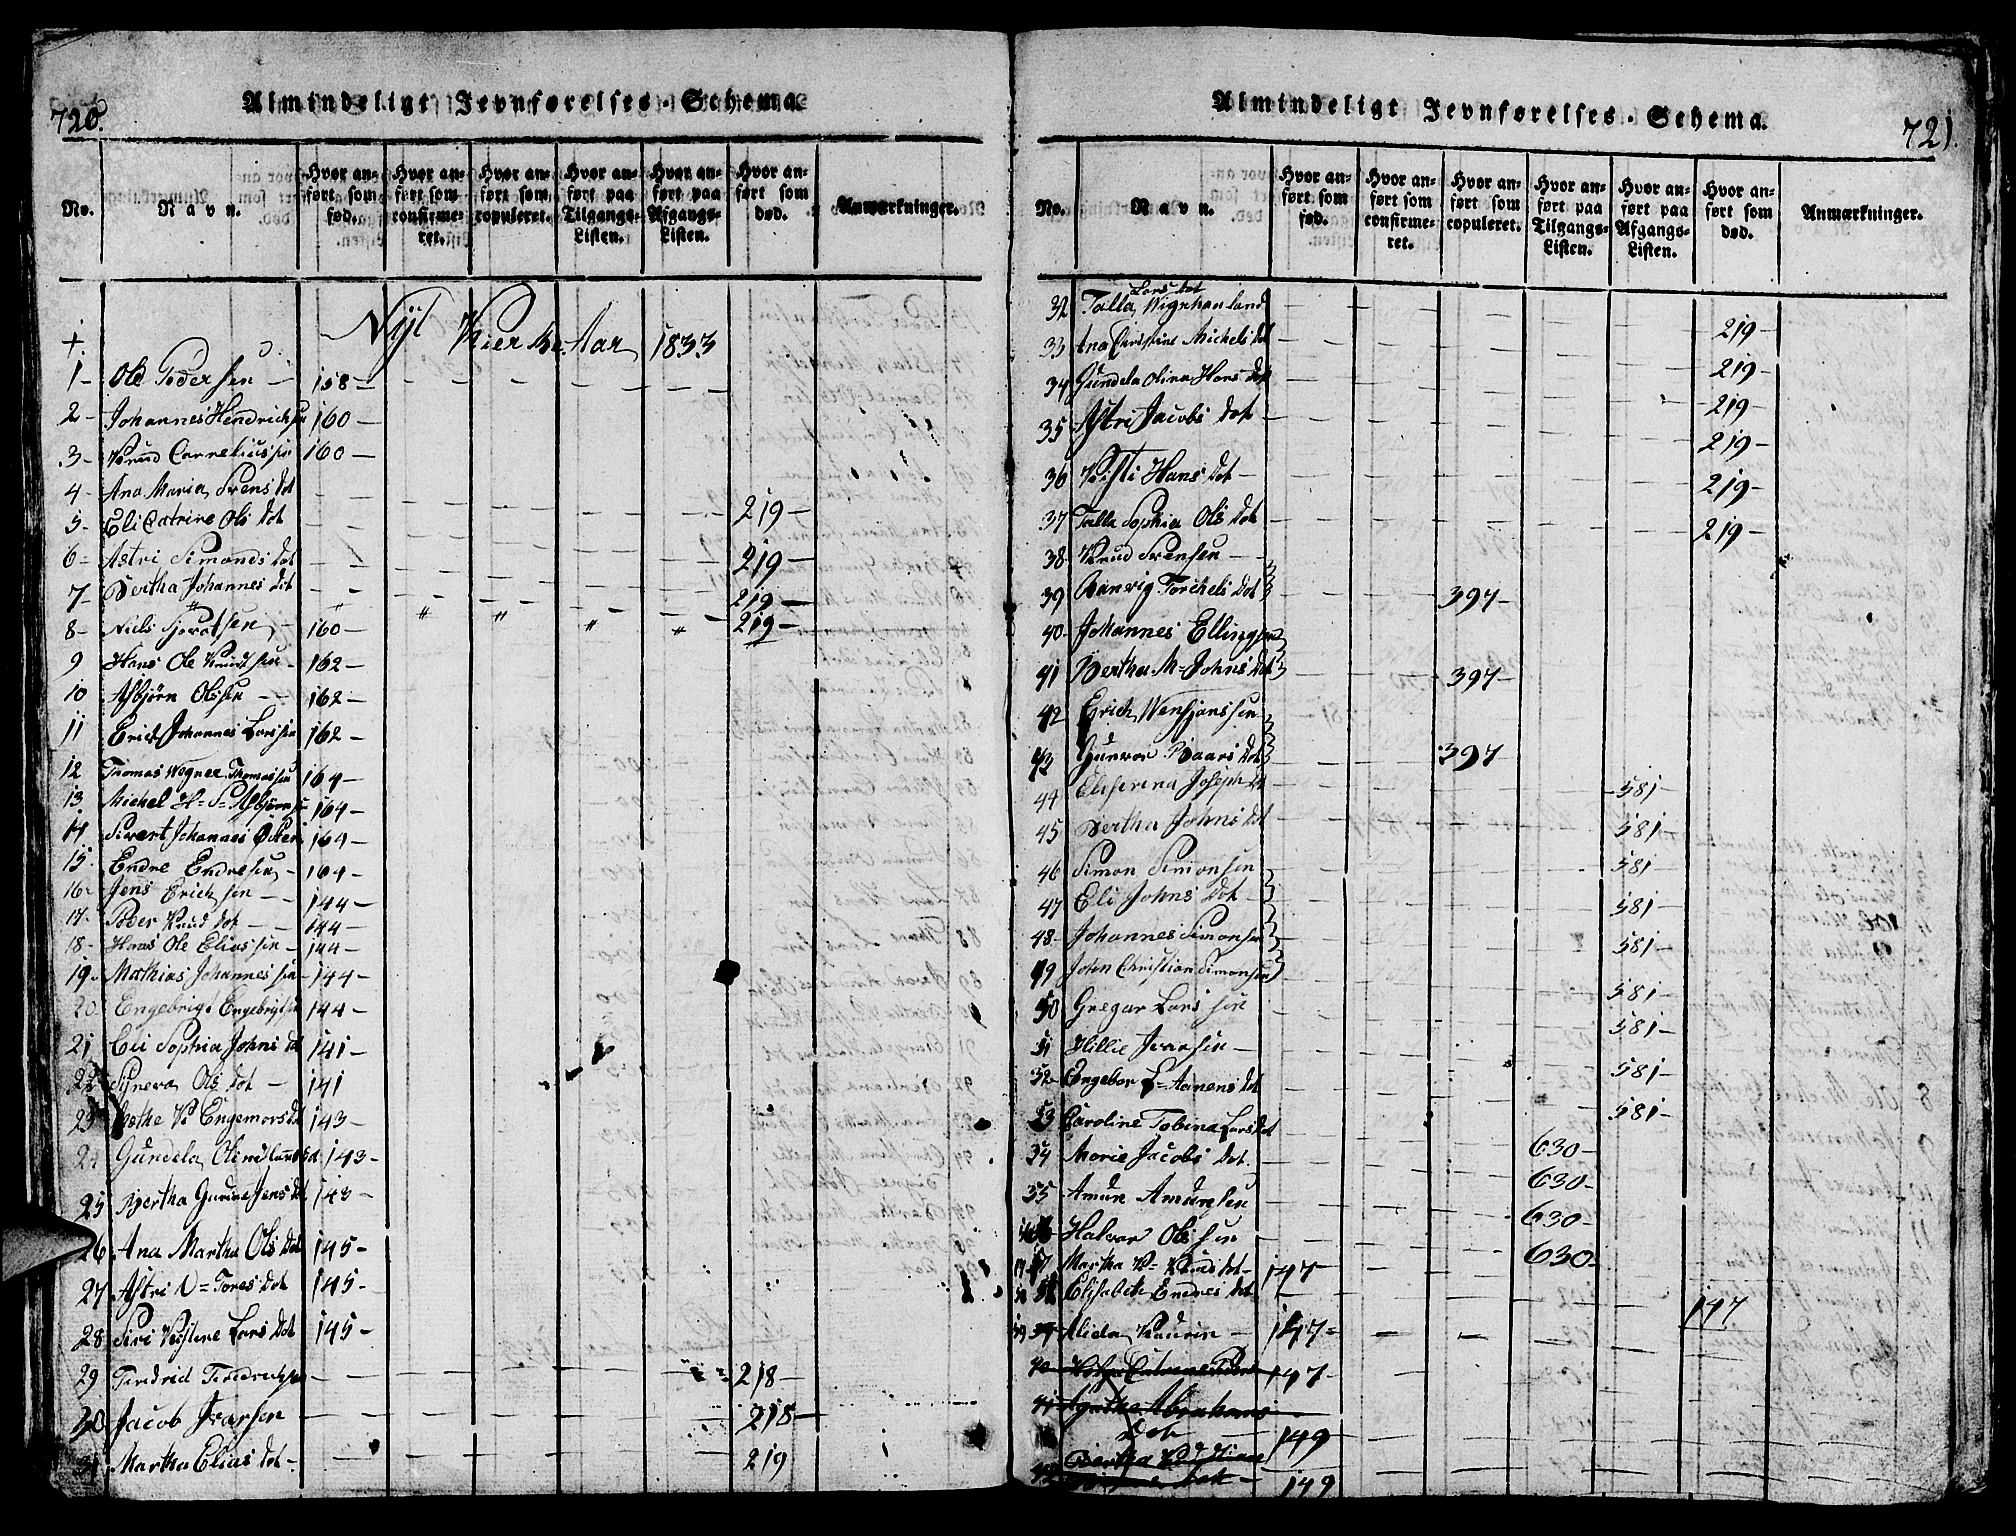 720.
Almindeligt Jevnførelses-Schema.
No.
Navn.
Hvor anført som fød.
Hvor anført som confirmeret.
Hvor anført som copuleret.
Hvor anført paa Tilgangs-Listen.
Hvor anført paa Afgangs-Listen.
Hvor anført som død.
Anmærkninger.
Nyt Kierke Aar 1833
1 - Ole Pedersen - 158 -
2 - Johannes Hendrichsen 160 -
3 - Knud Corneliussen 160 -
4 - Ana Maria Svens dot 219 -
5 - Eli Catrine Ols dot 219 -
6 - Astri Simonds dot 219 -
7 - Bertha Johannes dot 219 -
8 - Niels Sjovatsen 160 -
9 Hans Ole Knudsen - 162 -
10 Asbjörn Olssen - 162 -
11 Erich Johannes Larssen 162 -
12 Thomas Wegner Thomassen 164 -
13 Michel H= S= Asbjørnsen 164 -
14 Sivert Johannes 164 -
15 Endre Endresen - 164 -
16 - Jens Erichsen - 144 -
17 - Peder Knud dot - 144 -
18 - Hans Ole Eliassen - 144 -
19 - Mathias Johannessen - 144 -
20 Engebrigt Engebrigtsen 144 -
21 Eli Sophia Johns dot 141 -
22 Synneva Ols dot - 141
23 K Engemors dot 143 -
24 Gundela Oline Lars dot 143 -
25 Bertha Gurine Jens dot 143
26 Ana Martha Ols dot 145 -
27 Astri O= Tores dot 145 -
28 Siri Kistine Lars dot 145 -
29 Findrid Fredrichsen 218 -
30 Jacob Ivarsen 218 -
31 Martha Elias dot - 219
Almindeligt Jevnførelses-Schema.
721.
No.
Navn.
Hvor anført som fød.
Hvor anført som confirmeret.
Hvor anført som copuleret.
Hvor anført paa Tilgangs-Listen.
Hvor anført paa Afgangs-Listen.
Hvor anført som død.
Anmærkninger.
Lars dot
32 Talla Wignhanland 219 -
33 Ana Christine Michels dot 219 -
34 Gundela Olina Hans dot 219 -
35 Astri Jacobs dot 219 -
36 Kisti Hans dot - 219 -
37 Talla Sophia Ols dot 219 -
38 Knud Svensen -
39 Aanvig Torchels dot 397 -
40 - Johannes Ellingsen
41 Bertha M= Johns dot 397 -
42 Erich Wensjanssen
43 Gunvor Baars dot 397
44 Eliserina Joseph dot 581 -
45 Bertha Johns dot 581 -
46 Simon Simonsen 581 -
47 Eli Johns dot - 581 -
48 - Johannes Simonsen 581 -
49 John Christian Simonsen 581 -
50 Gregar Larssen 581 -
51 Hillie Ivarsen - 581 -
52 - Engebor L= Aanens dot 581 -
53 Caroline Tobina Lars dot
34 Marie Jacobs dot. 630 -
35 Amun Amunsen 630 -
Halvor Olssen 630 -
Martha K= Knuds dot - 147 630 -
Elisabeth Endres dot 147
39 Alida Kaurin - 147 -
40 Catrine 147 -
41 Agathe Abrahams
Dot 149
42 Bertha
dot - 149